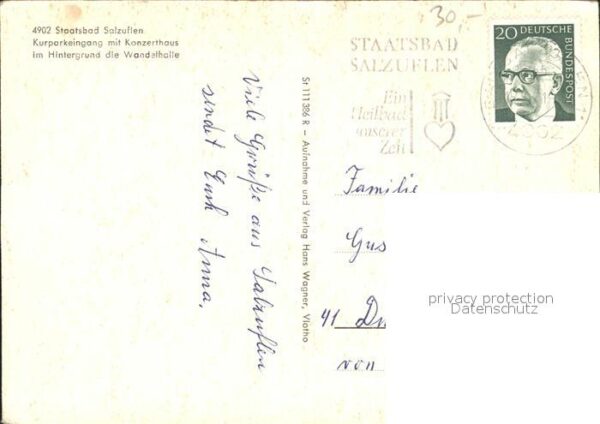 4902 Staatsbad Salzuflen
Kurparkeingang mit Konzerthaus
im Hintergrund die Wandelhalle
Viele Grüße aus Salzuflen
sendet Euch Anna.
St 111 386 R – Aufnahme und Verlag Hans Wagner, Vlotho
30,-
STAATSBAD
SALZUFLEN
Ein
Heilbad
unserer
Zeit
20 DEUTSCHE
BUNDESPOST
4902
Familie
Gus
41
von
privacy protection
Datenschutz